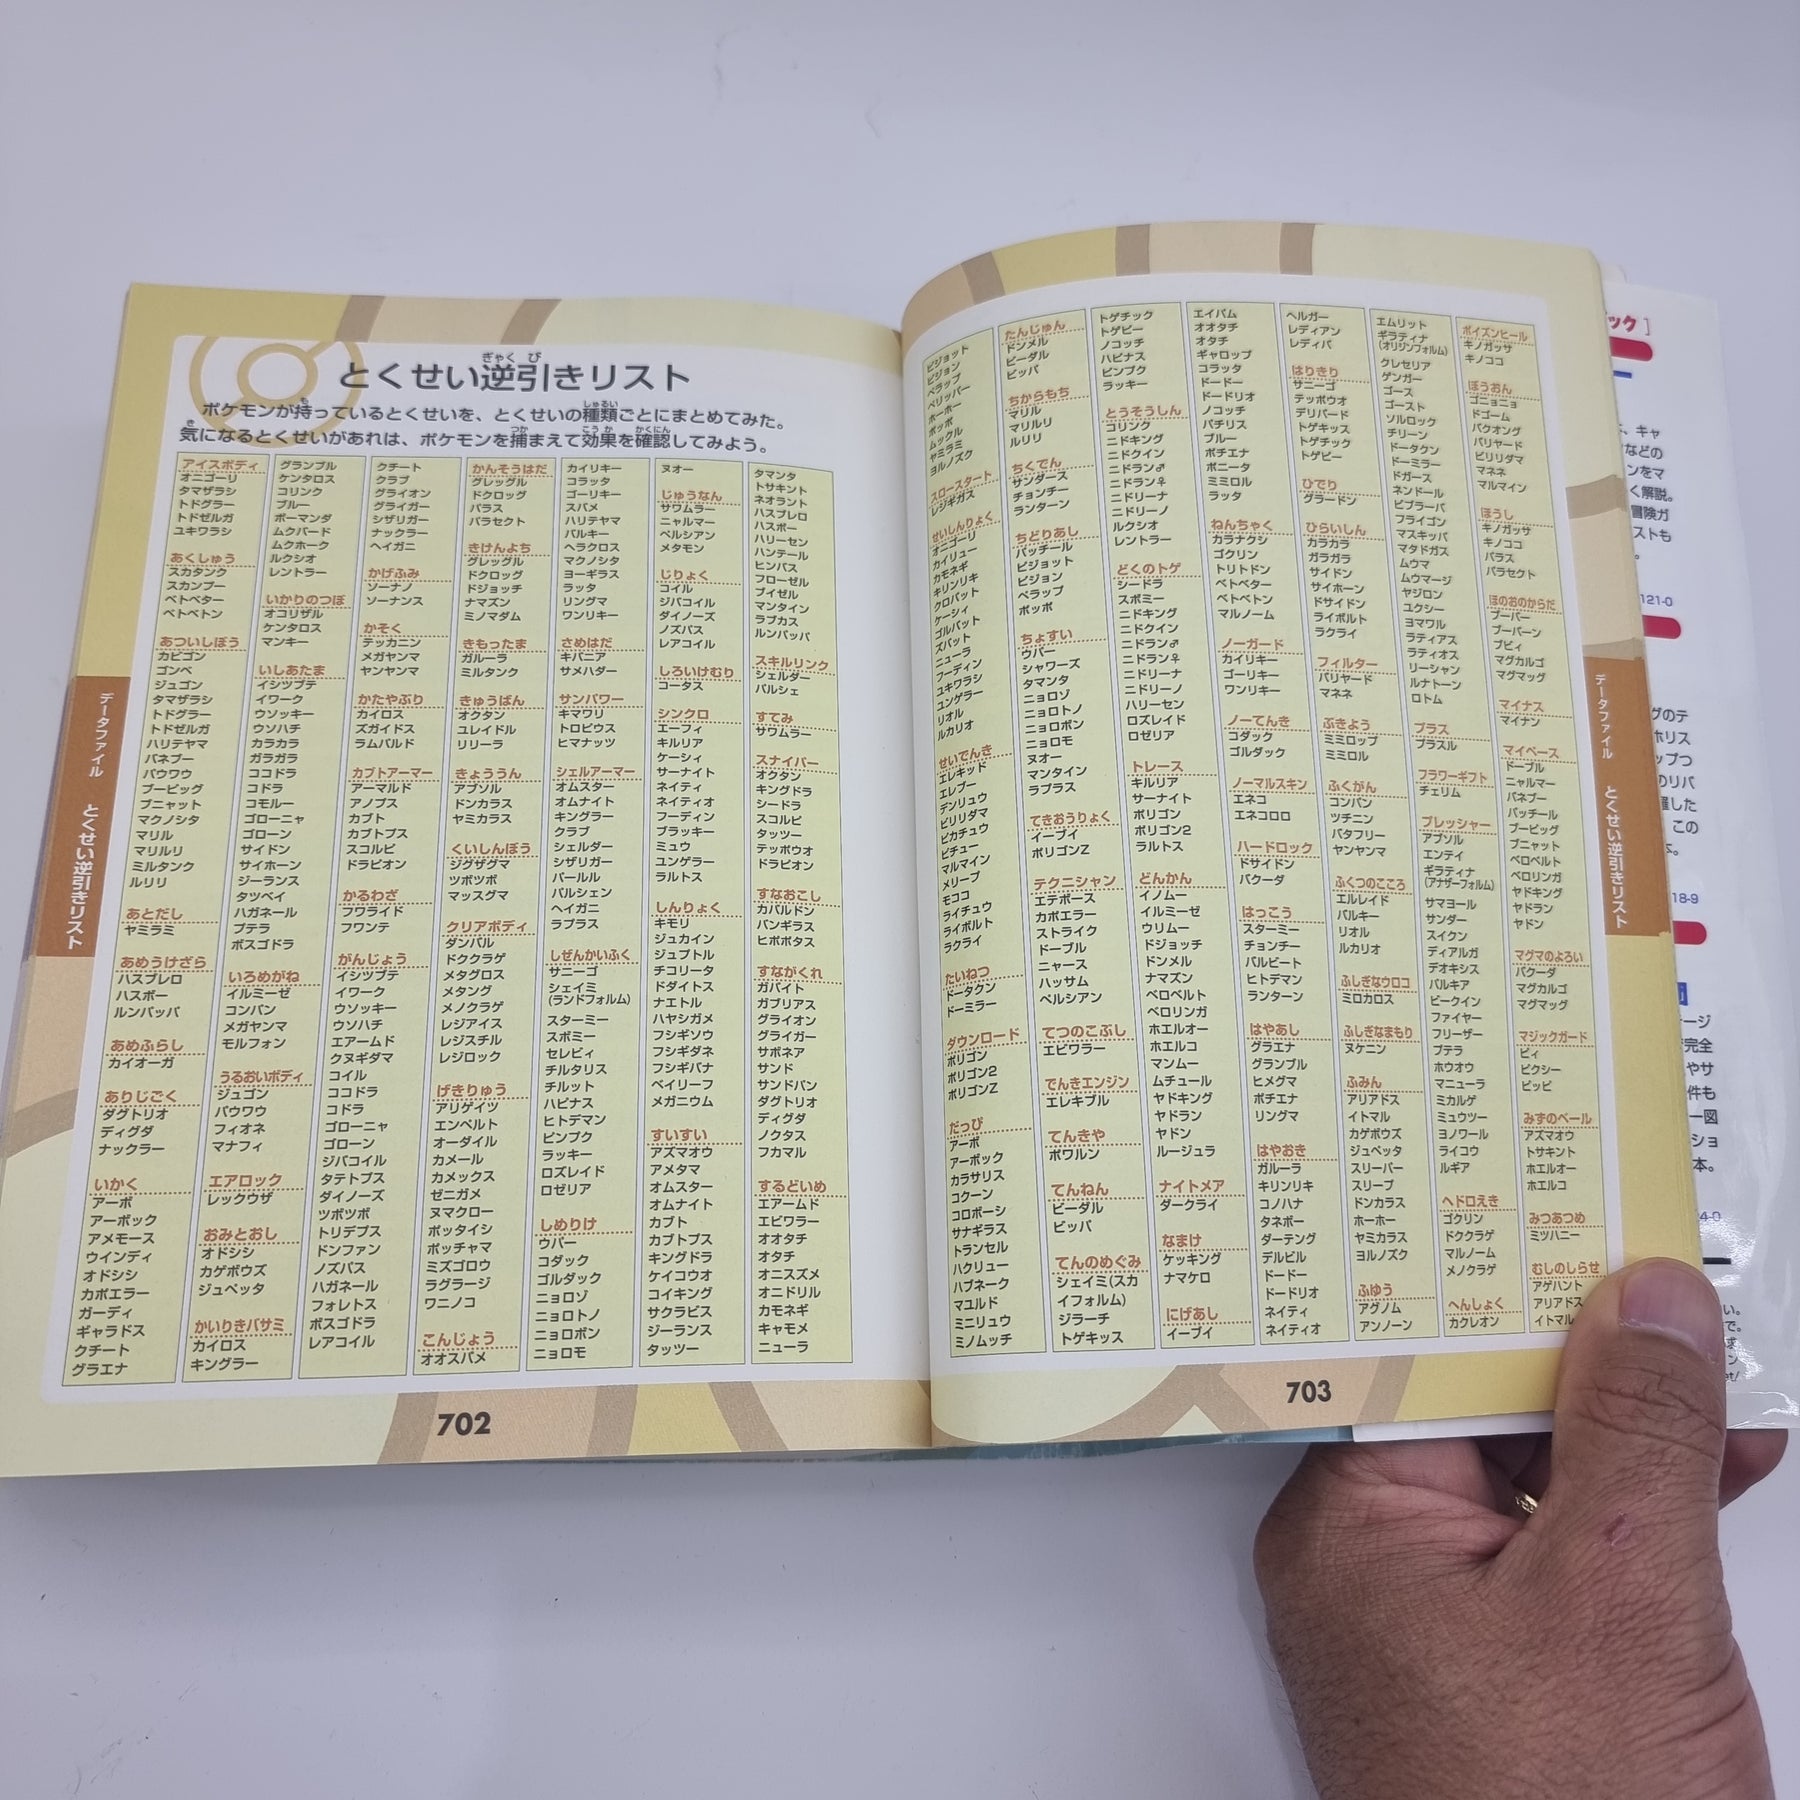 とくせい逆引きリスト
ポケモンが持っているとくせいを、とくせいの種類ごとにまとめてみた。
気になるとくせいがあれは、ポケモンを捕まえて効果を確認してみよう。
アイスボディ
オニゴーリ
タマザラシ
トドグラー
トドゼルガ
ユキワラシ
あくしゅう
スカタンク
スカンプー
ベトベター
ベトベトン
あついしぼう
カビゴン
ゴンベ
ジュゴン
タマザラシ
トドグラー
トドゼルガ
ハリテヤマ
バネブー
パウワウ
ブーピッグ
ブニャット
マクノシタ
マリル
マリルリ
ミルタンク
ルリリ
あとだし
ヤミラミ
あめうけざら
ハスブレロ
ハスボー
ルンパッパ
あめふらし
カイオーガ
ありじごく
ダグトリオ
ディグダ
ナックラー
いかく
アーボ
アーボック
アメモース
ウインディ
オドシシ
カポエラー
ガーディ
ギャラドス
クチート
グラエナ
グランブル
ケンタロス
コリンク
ブルー
ボーマンダ
ムクバード
ムクホーク
ルクシオ
レントラー
いかりのつぼ
オコリザル
ケンタロス
マンキー
いしあたま
イシツブテ
イワーク
ウソッキー
ウソハチ
カラカラ
ガラガラ
ココドラ
コドラ
コモルー
ゴローニャ
ゴローン
サイドン
サイホーン
ジーランス
タツベイ
ハガネール
プテラ
ボスゴドラ
いろめがね
イルミーゼ
コンパン
メガヤンマ
モルフォン
うるおいボディ
ジュゴン
パウワウ
フィオネ
マナフィ
エアロック
レックウザ
おみとおし
オドシシ
カゲボウズ
ジュペッタ
かいりきバサミ
カイロス
キングラー
クチート
クラブ
グライオン
グライガー
シザリガー
ナックラー
ヘイガニ
かげふみ
ソーナノ
ソーナンス
かそく
テッカニン
メガヤンマ
ヤンヤンマ
かたやぶり
カイロス
ズガイドス
ラムパルド
カブトアーマー
アーマルド
アノプス
カブト
カブトプス
スコルピ
ドラピオン
かるわざ
フワライド
フワンテ
がんじょう
イシツブテ
イワーク
ウソッキー
ウソハチ
エアームド
クヌギダマ
コイル
ココドラ
コドラ
ゴローニャ
ゴローン
ジバコイル
タテトプス
ダイノーズ
ツボツボ
トリデプス
ドンファン
ノズパス
ハガネール
フォレトス
ボスゴドラ
レアコイル
かんそうはだ
グレッグル
ドクロッグ
パラス
パラセクト
きけんよち
グレッグル
ドクロッグ
ドジョッチ
ナマズン
ミノマダム
きもったま
ガルーラ
ミルタンク
きゅうばん
オクタン
ユレイドル
リリーラ
きょううん
アブソル
ドンカラス
ヤミカラス
くいしんぼう
ジグザグマ
ツボツボ
マッスグマ
クリアボディ
ダンバル
ドククラゲ
メタグロス
メタング
メノクラゲ
レジアイス
レジスチル
レジロック
げきりゅう
アリゲイツ
エンペルト
オーダイル
カメール
カメックス
ゼニガメ
ヌマクロー
ポッタイシ
ポッチャマ
ミズゴロウ
ラグラージ
ワニノコ
こんじょう
オオスバメ
カイリキー
コラッタ
ゴーリキー
スバメ
ハリテヤマ
バルキー
ヘラクロス
マクノシタ
ヨーギラス
ラッタ
リングマ
ワンリキー
さめはだ
キバニア
サメハダー
サンパワー
キマワリ
トロピウス
ヒマナッツ
シェルアーマー
オムスター
オムナイト
キングラー
クラブ
シェルダー
シザリガー
パールル
パルシェン
ヘイガニ
ラプラス
しぜんかいふく
サニーゴ
シェイミ
(ランドフォルム)
スターミー
スボミー
セレビィ
チルタリス
チルット
ハピナス
ヒトデマン
ピンプク
ラッキー
ロズレイド
ロゼリア
しめりけ
ウパー
コダック
ゴルダック
ニョロゾ
ニョロトノ
ニョロボン
ニョロモ
ヌオー
じゅうなん
サワムラー
ニャルマー
ペルシアン
メタモン
じりょく
コイル
ジバコイル
ダイノーズ
ノズパス
レアコイル
しろいけむり
コータス
シンクロ
エーフィ
キルリア
ケーシィ
サーナイト
ネイティ
ネイティオ
フーディン
ブラッキー
ミュウ
ユンゲラー
ラルトス
しんりょく
キモリ
ジュカイン
ジュプトル
チコリータ
ドダイトス
ナエトル
ハヤシガメ
フシギソウ
フシギダネ
フシギバナ
ベイリーフ
メガニウム
すいすい
アズマオウ
アメタマ
オムスター
オムナイト
カブト
カブトプス
キングドラ
ケイコウオ
コイキング
サクラビス
ジーランス
タッツー
タマンタ
トサキント
ネオラント
ハスブレロ
ハスボー
ハリーセン
ハンテール
ヒンバス
フローゼル
ブイゼル
マンタイン
ラブカス
ルンパッパ
スキルリンク
シェルダー
パルシェ
すてみ
サワムラー
スナイパー
オクタン
キングドラ
シードラ
スコルピ
タッツー
テッポウオ
ドラピオン
すなおこし
カバルドン
バンギラス
ヒポポタス
すながくれ
ガバイト
ガブリアス
グライオン
グライガー
サボネア
サンド
サンドパン
ダグトリオ
ディグダ
ノクタス
フカマル
するどいめ
エアームド
エビワラー
オオタチ
オタチ
オニスズメ
オニドリル
カモネギ
キャモメ
ニューラ
データファイル
とくせい逆引きリスト
702
ピジョット
ピジョン
ペラップ
ペリッパー
ホーホー
ポッポ
ムックル
ヤミラミ
ヨルノズク
スロースタート
レジギガス
せいしんりょく
オニゴーリ
カイリュー
カモネギ
キリンリキ
クロバット
ケーシィ
ゴルバット
ズバット
ニューラ
フーディン
ユキワラシ
ユンゲラー
リオル
ルカリオ
せいでんき
エレキッド
エレブー
デンリュウ
ビリリダマ
ピカチュウ
ピチュー
マルマイン
メリープ
モココ
ライチュウ
ライボルト
ラクライ
たいねつ
ドータクン
ドーミラー
ダウンロード
ポリゴン
ポリゴン2
ポリゴンZ
だっぴ
アーボ
アーボック
カラサリス
コクーン
コロボーシ
サナギラス
トランセル
ハクリュー
ハブネーク
マユルド
ミニリュウ
ミノムッチ
たんじゅん
ドンメル
ビーダル
ビッパ
ちからもち
マリル
マリルリ
ルリリ
ちくでん
サンダース
チョンチー
ランターン
ちどりあし
パッチール
ピジョット
ピジョン
ペラップ
ポッポ
ちょすい
ウパー
シャワーズ
タマンタ
ニョロゾ
ニョロトノ
ニョロボン
ニョロモ
ヌオー
マンタイン
ラプラス
てきおうりょく
イーブイ
ポリゴンZ
テクニシャン
エテボース
カポエラー
ストライク
ドーブル
ニャース
ハッサム
ペルシアン
てつのこぶし
エビワラー
でんきエンジン
エレキブル
てんきや
ポワルン
てんねん
ビーダル
ビッパ
てんのめぐみ
シェイミ(スカ
イフォルム)
ジラーチ
トゲキッス
トゲチック
トゲピー
ノコッチ
ハピナス
ピンプク
ラッキー
とうそうしん
コリンク
ニドキング
ニドクイン
ニドラン♂
ニドラン♀
ニドリーナ
ニドリーノ
ルクシオ
レントラー
どくのトゲ
シードラ
スボミー
ニドキング
ニドクイン
ニドラン♂
ニドラン♀
ニドリーナ
ニドリーノ
ハリーセン
ロズレイド
ロゼリア
トレース
キルリア
サーナイト
ポリゴン
ポリゴン2
ラルトス
どんかん
イノムー
イルミーゼ
ウリムー
ドジョッチ
ドンメル
ナマズン
ベロベルト
ベロリンガ
ホエルオー
ホエルコ
マンムー
ムチュール
ヤドキング
ヤドラン
ヤドン
ルージュラ
ナイトメア
ダークライ
なまけ
ケッキング
ナマケロ
にげあし
イーブイ
エイパム
オオタチ
オタチ
ギャロップ
コラッタ
ドードー
ドードリオ
ノコッチ
パチリス
ブルー
ポチエナ
ポニータ
ミミロル
ラッタ
ねんちゃく
カラナクシ
ゴクリン
トリトドン
ベトベター
ベトベトン
マルノーム
ノーガード
カイリキー
ゴーリキー
ワンリキー
ノーてんき
コダック
ゴルダック
ノーマルスキン
エネコ
エネコロロ
ハードロック
ドサイドン
バクーダ
はっこう
スターミー
チョンチー
バルビート
ヒトデマン
ランターン
はやあし
グラエナ
グランブル
ヒメグマ
ポチエナ
リングマ
はやおき
ガルーラ
キリンリキ
コノハナ
タネボー
ダーテング
デルビル
ドードー
ドードリオ
ネイティ
ネイティオ
ヘルガー
レディアン
レディバ
はりきり
サニーゴ
テッポウオ
デリバード
トゲキッス
トゲチック
トゲピー
ひでり
グラードン
ひらいしん
カラカラ
ガラガラ
サイドン
サイホーン
ドサイドン
ライボルト
ラクライ
フィルター
バリヤード
マネネ
ぶきよう
ミミロップ
ミミロル
ふくがん
コンパン
ツチニン
バタフリー
ヤンヤンマ
ふくつのこころ
エルレイド
バルキー
リオル
ルカリオ
ふしぎなウロコ
ミロカロス
ふしぎなまもり
ヌケニン
ふみん
アリアドス
イトマル
カゲボウズ
ジュペッタ
スリーパー
スリープ
ドンカラス
ホーホー
ヤミカラス
ヨルノズク
ふゆう
アグノム
アンノーン
エムリット
ギラティナ
(オリジンフォルム)
クレセリア
ゲンガー
ゴース
ゴースト
ソルロック
チリーン
ドータクン
ドーミラー
ドガース
ネンドール
ビブラーバ
フライゴン
マスキッパ
マタドガス
ムウマ
ムウマージ
ヤジロン
ユクシー
ヨマワル
ラティアス
ラティオス
リーシャン
ルナトーン
ロトム
プラス
プラスル
フラワーギフト
チェリム
プレッシャー
アブソル
エンテイ
ギラティナ
(アナザーフォルム)
サマヨール
サンダー
スイクン
ディアルガ
デオキシス
パルキア
ビークイン
ファイヤー
フリーザー
プテラ
ホウオウ
マニューラ
ミカルゲ
ミュウツー
ヨノワール
ライコウ
ルギア
ヘドロえき
ゴクリン
ドククラゲ
マルノーム
メノクラゲ
へんしょく
カクレオン
ポイズンヒール
キノガッサ
キノココ
ぼうおん
ゴニョニョ
ドゴーム
バクオング
バリヤード
ビリリダマ
マネネ
マルマイン
ほうし
キノガッサ
キノココ
パラス
パラセクト
ほのおのからだ
ブーバー
ブーバーン
ブビィ
マグカルゴ
マグマッグ
マイナス
マイナン
マイペース
ドーブル
ニャルマー
バネブー
パッチール
ブーピッグ
ブニャット
ベロベルト
ベロリンガ
ヤドキング
ヤドラン
ヤドン
マグマのよろい
バクーダ
マグカルゴ
マグマッグ
マジックガード
ピィ
ピクシー
ピッピ
みずのベール
アズマオウ
トサキント
ホエルオー
ホエルコ
みつあつめ
ミツハニー
むしのしらせ
アゲハント
アリアドス
イトマル
データファイル
とくせい逆引きリスト
703
ック]
、キャ
などの
ンをマ
く解説。
冒険ガ
ストも
121-0
グのテ
ホリス
ップつ
のリバ
この
18-9
ージ
完全
やサ
件も
一図
ショ
本。
4-0